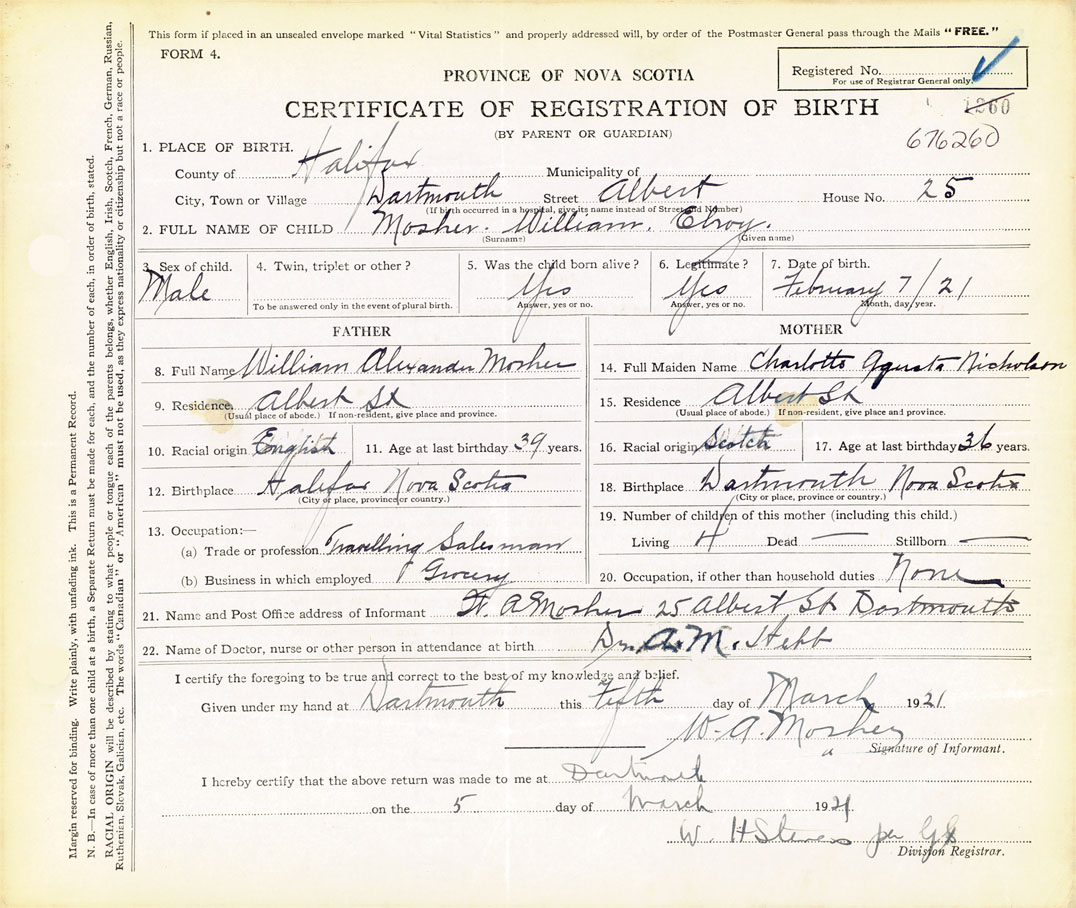 This form if placed in an unsealed envelope marked "Vital Statistics" and properly addressed will, by order of the Postmaster General pass through the Mails "FREE."
FORM 4.
Registered No.
For use of Registrar General only.
PROVINCE OF NOVA SCOTIA
CERTIFICATE OF REGISTRATION OF BIRTH
1260
(BY PARENT OR GUARDIAN)
676260
1. PLACE OF BIRTH.
County of Halifax Municipality of
City, Town or Village Dartmouth Street Albert House No. 25
(If birth occurred in a hospital, give its name instead of Street and Number)
2. FULL NAME OF CHILD Mosher. William. Elroy.
(Surname) (Given name)
3. Sex of child. 4. Twin, triplet or other? 5. Was the child born alive? 6. Legitimate? 7. Date of birth.
Male Yes Yes February 7/21
To be answered only in the event of plural birth. Answer, yes or no. Answer, yes or no. Month, day, year.
FATHER
8. Full Name William Alexander Mosher
9. Residence. Albert St
(Usual place of abode.) If non-resident, give place and province.
10. Racial origin English 11. Age at last birthday 39 years.
12. Birthplace Halifax Nova Scotia
(City or place, province or country.)
13. Occupation:—
(a) Trade or profession Travelling Salesman
(b) Business in which employed Grocery
MOTHER
14. Full Maiden Name Charlotte Agusta Nicholson
15. Residence Albert St
(Usual place of abode.) If non-resident, give place and province.
16. Racial origin Scotch 17. Age at last birthday 36 years.
18. Birthplace Dartmouth Nova Scotia
(City or place, province or country.)
19. Number of children of this mother (including this child.)
Living 4 Dead — Stillborn —
20. Occupation, if other than household duties None
21. Name and Post Office address of Informant W. A Mosher 25 Albert St Dartmouth
22. Name of Doctor, nurse or other person in attendance at birth Dr. A. M. Hebb
I certify the foregoing to be true and correct to the best of my knowledge and belief.
Given under my hand at Dartmouth this Fifth day of March 1921.
W. A. Mosher
Signature of Informant.
I hereby certify that the above return was made to me at Dartmouth
on the 5 day of March 1921.
W. H Stevens per
Division Registrar.
Margin reserved for binding. Write plainly, with unfading ink. This is a Permanent Record.
N. B.—In case of more than one child at a birth, a Separate Return must be made for each, and the number of each, in order of birth, stated.
RACIAL ORIGIN will be described by stating to what people or tongue each of the parents belongs, whether English, Irish, Scotch, French, German, Russian,
Ruthenian, Slovak, Galician, etc. The words "Canadian" or "American" must not be used, as they express nationality or citizenship but not a race or people.